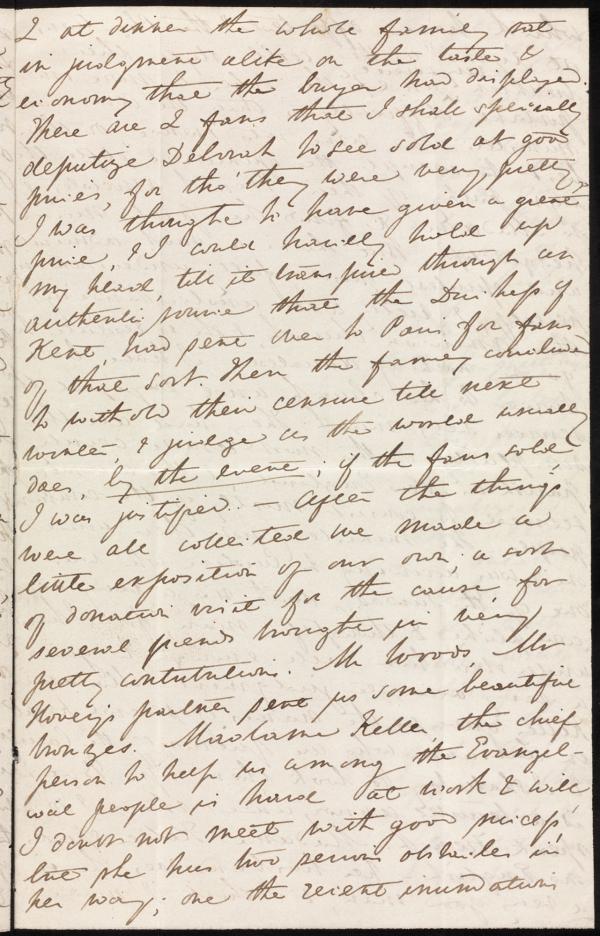 & at dinner the whole family sat
in judgment alike on the taste &
economy that the buyer had displayed.
There are 2 fans that I shall specially
deputize Deborah to see sold at good
prices, for tho' they were very pretty
I was thought to have given a great
price, & I could hardly hold up
my head, till it transpired through an
authentic source that the Duchess of
Kent, had sent over to Paris for fans
of that sort. Then the family concluded
to withold their censure till next
winter, & judge as the world usually
does, by the event; if the fans sold
I was justified. — After the things
were all collected we made a
little exposition of our own, a sort
of donation visit for the cause, for
several friends brought in very
pretty contributions. Mr Woods, Mr
Hovey's partner sent us some beautiful
bronzes. Madame Keller, the chief
person to help us among the Evangel-
ical people is hard at work & will
I doubt not meet with good success,
but she has two serious obstacles in
her way; one the recent inundations